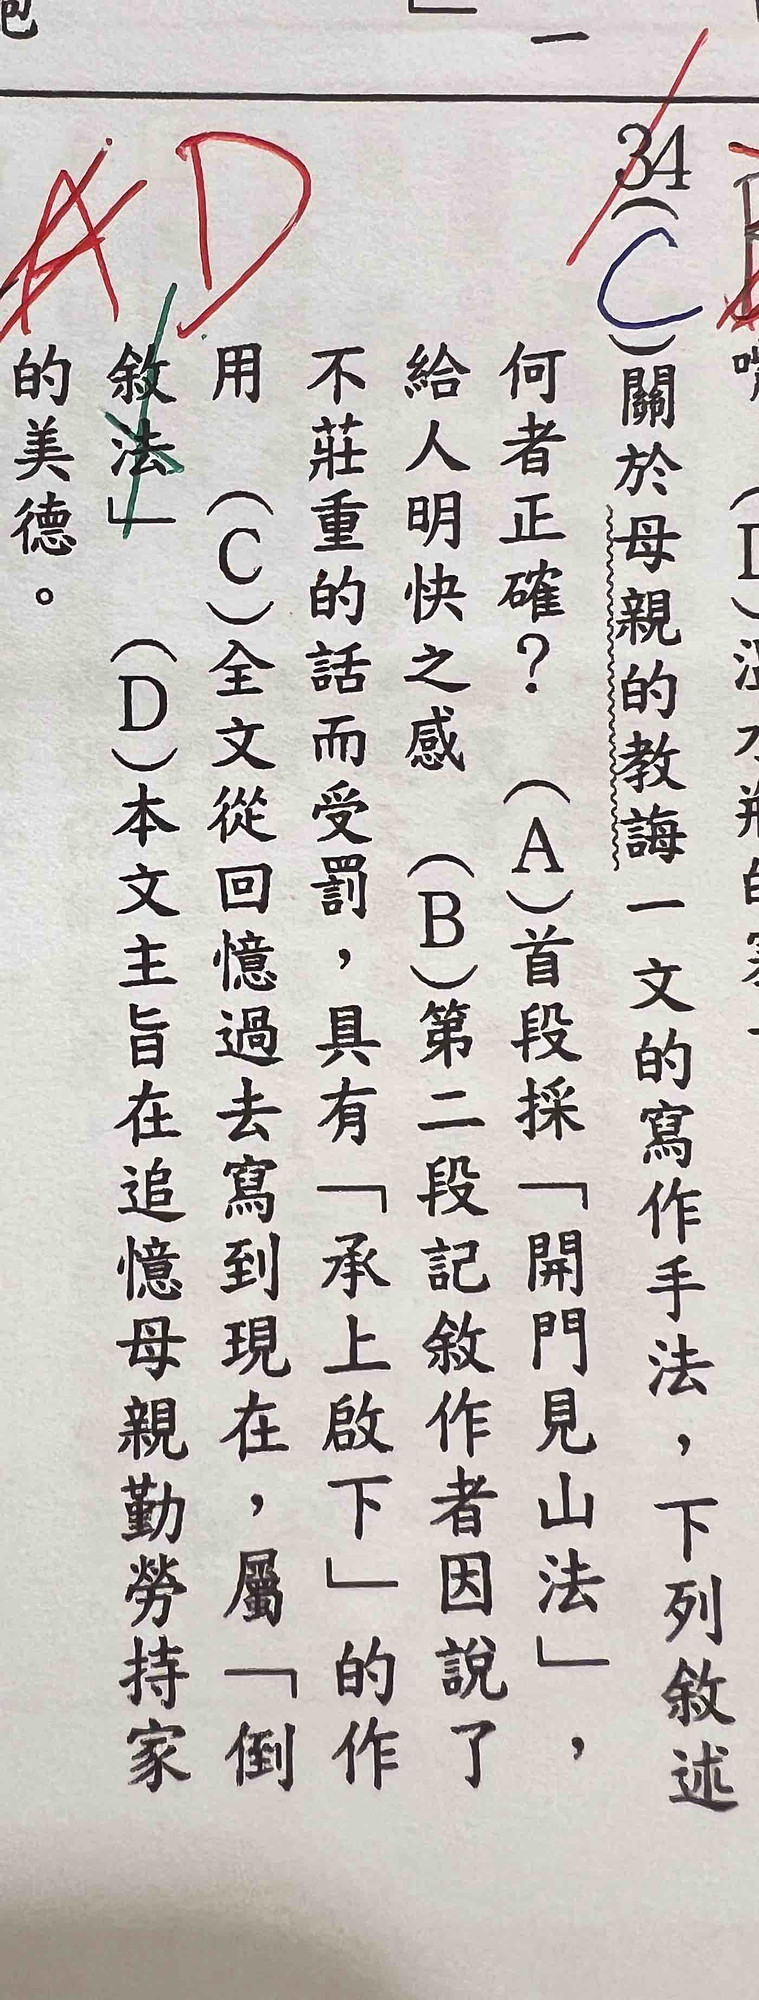 34(C)關於母親的教誨一文的寫作手法，下列敘述
何者正確？ (A)首段採「開門見山法」，
給人明快之感 (B)第二段記敘作者因說了
不莊重的話而受罰，具有「承上啟下」的作
用 (C)全文從回憶過去寫到現在，屬「倒
敘法」 (D)本文主旨在追憶母親勤勞持家
的美德。
A D